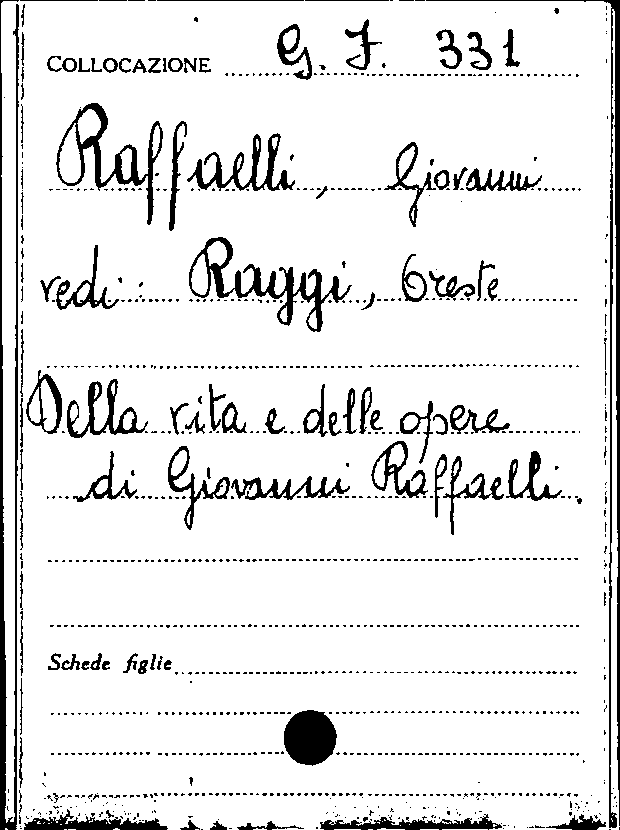 COLLOCAZIONE G. F. 331
Raffaelli, Giovanni
vedi: Raggi, Oreste
Della vita e delle opere
di Giovanni Raffaelli.
Schede figlie